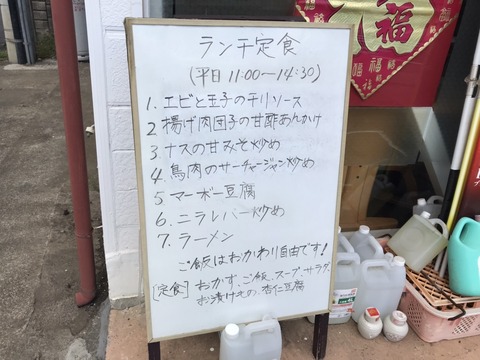 ランチ定食
(平日 11:00〜14:30)
1. エビと玉子のチリソース
2 揚げ肉団子の甘酢あんかけ
3 ナスの甘みそ炒め
4 鳥肉のサーチャージャン炒め
5 マーボー豆腐
6. ニラレバー炒め
7. ラーメン
ご飯はおかわり自由です!
[定食] おかず、ご飯、スープ、サラダ、
お漬けもの、杏仁豆腐
福
福
福